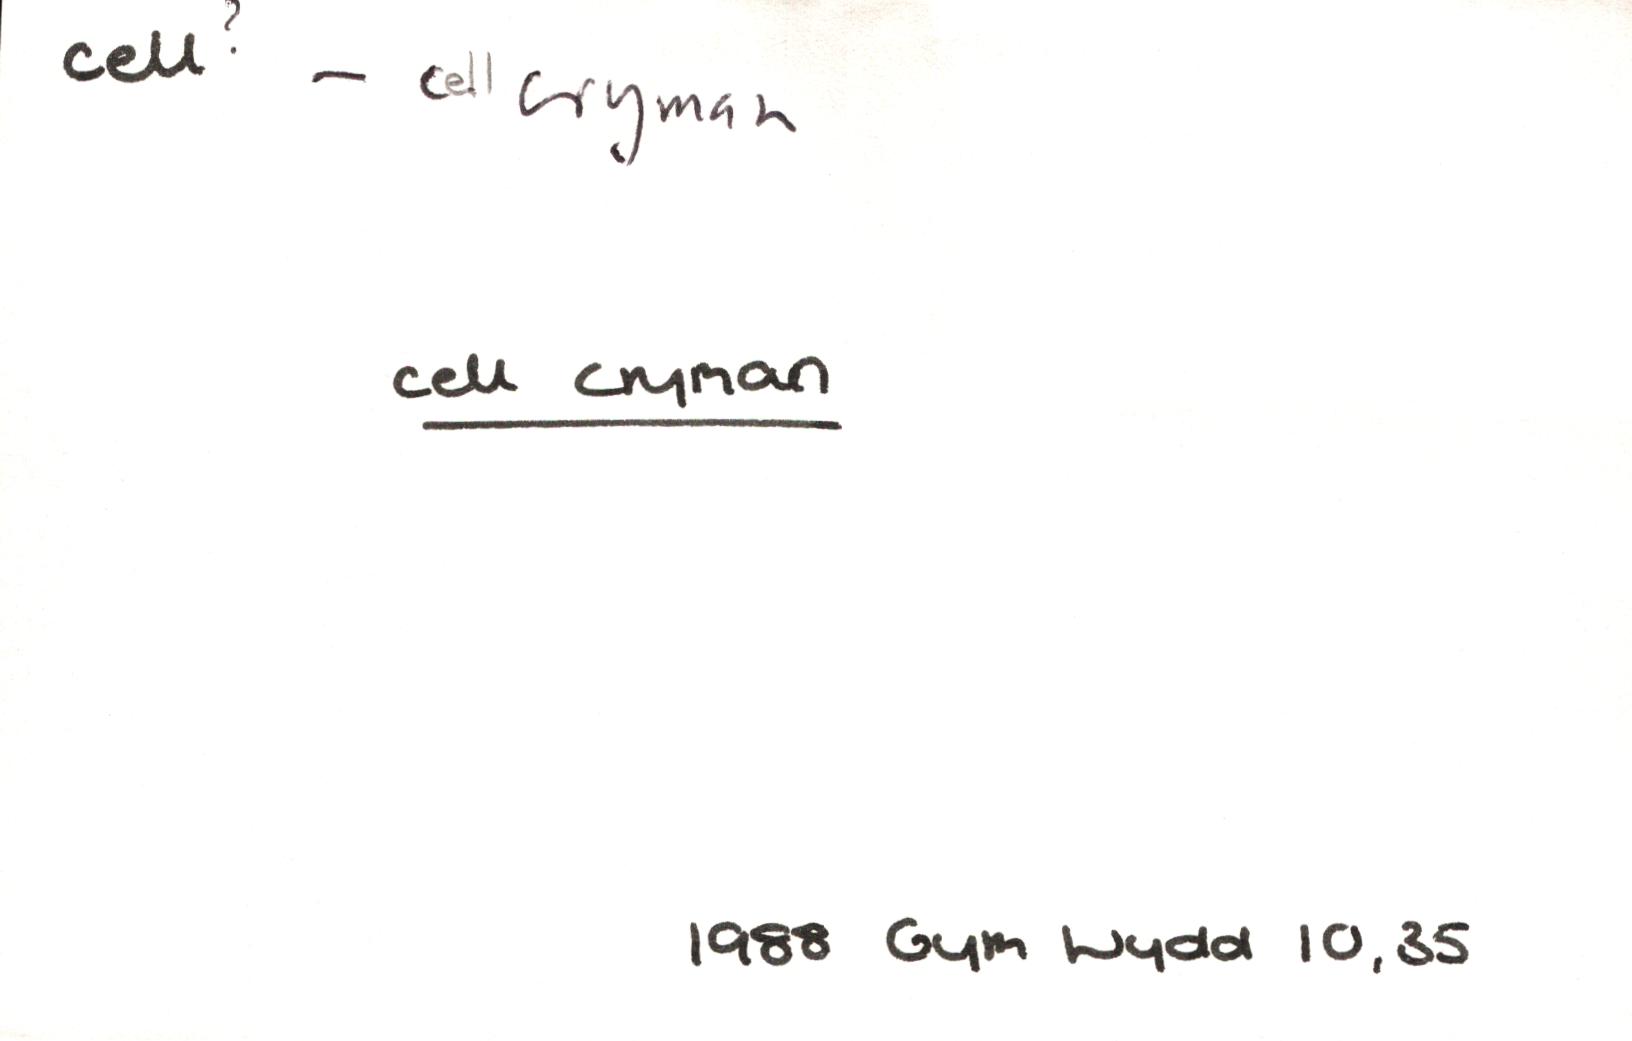 cell? – cell cryman
cell cryman
1988 Gym Wydd 10,35